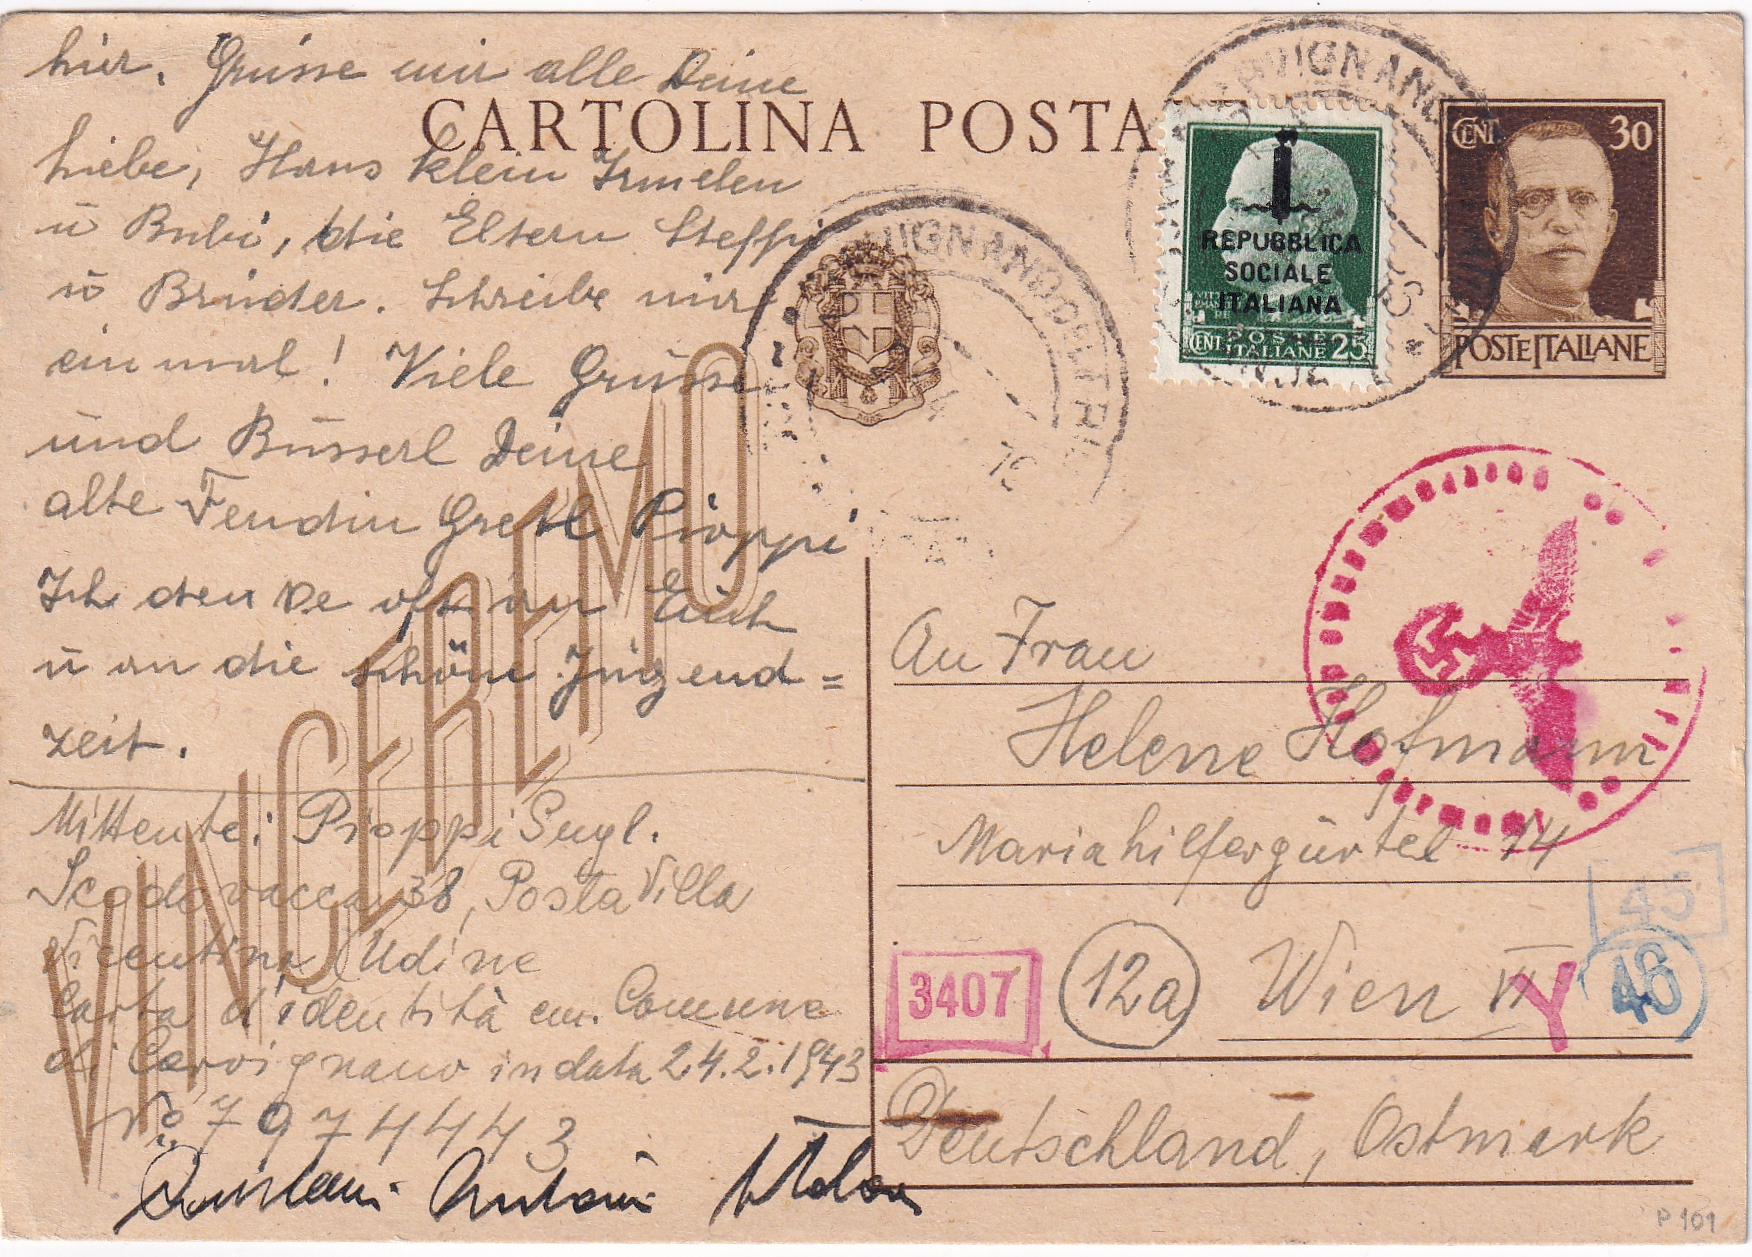 hier. Grüsse mir alle Deine
Liebe, Hans klein Irmelen
ü Bubi, die Eltern Steffi
ü Brüder. Schreibe mir
einmal! Viele Grüsse
und Büsserl Deine
alte Feudin Gretl Pioppi
Ich denke oft an Euch
ü an die schöne Jugend=
zeit.
Mittente: Pioppi Gugl.
Scodovacca 38, Posta Villa
Vicentina Udine
Carta d'identità em. Comune
di Cervignano in data 24.2.1943
No 7974443
CARTOLINA POSTA
VINCEREMO
CERVIGNANO DEL FRIULI
REPUBBLICA
SOCIALE
ITALIANA
CENT POSTE ITALIANE 25
CENT 30
POSTE ITALIANE
An Frau
Helene Hofmann
Mariahilfergürtel 14
3407
12a Wien VI
Y
45
46
Deutschland, Ostmark
P 101